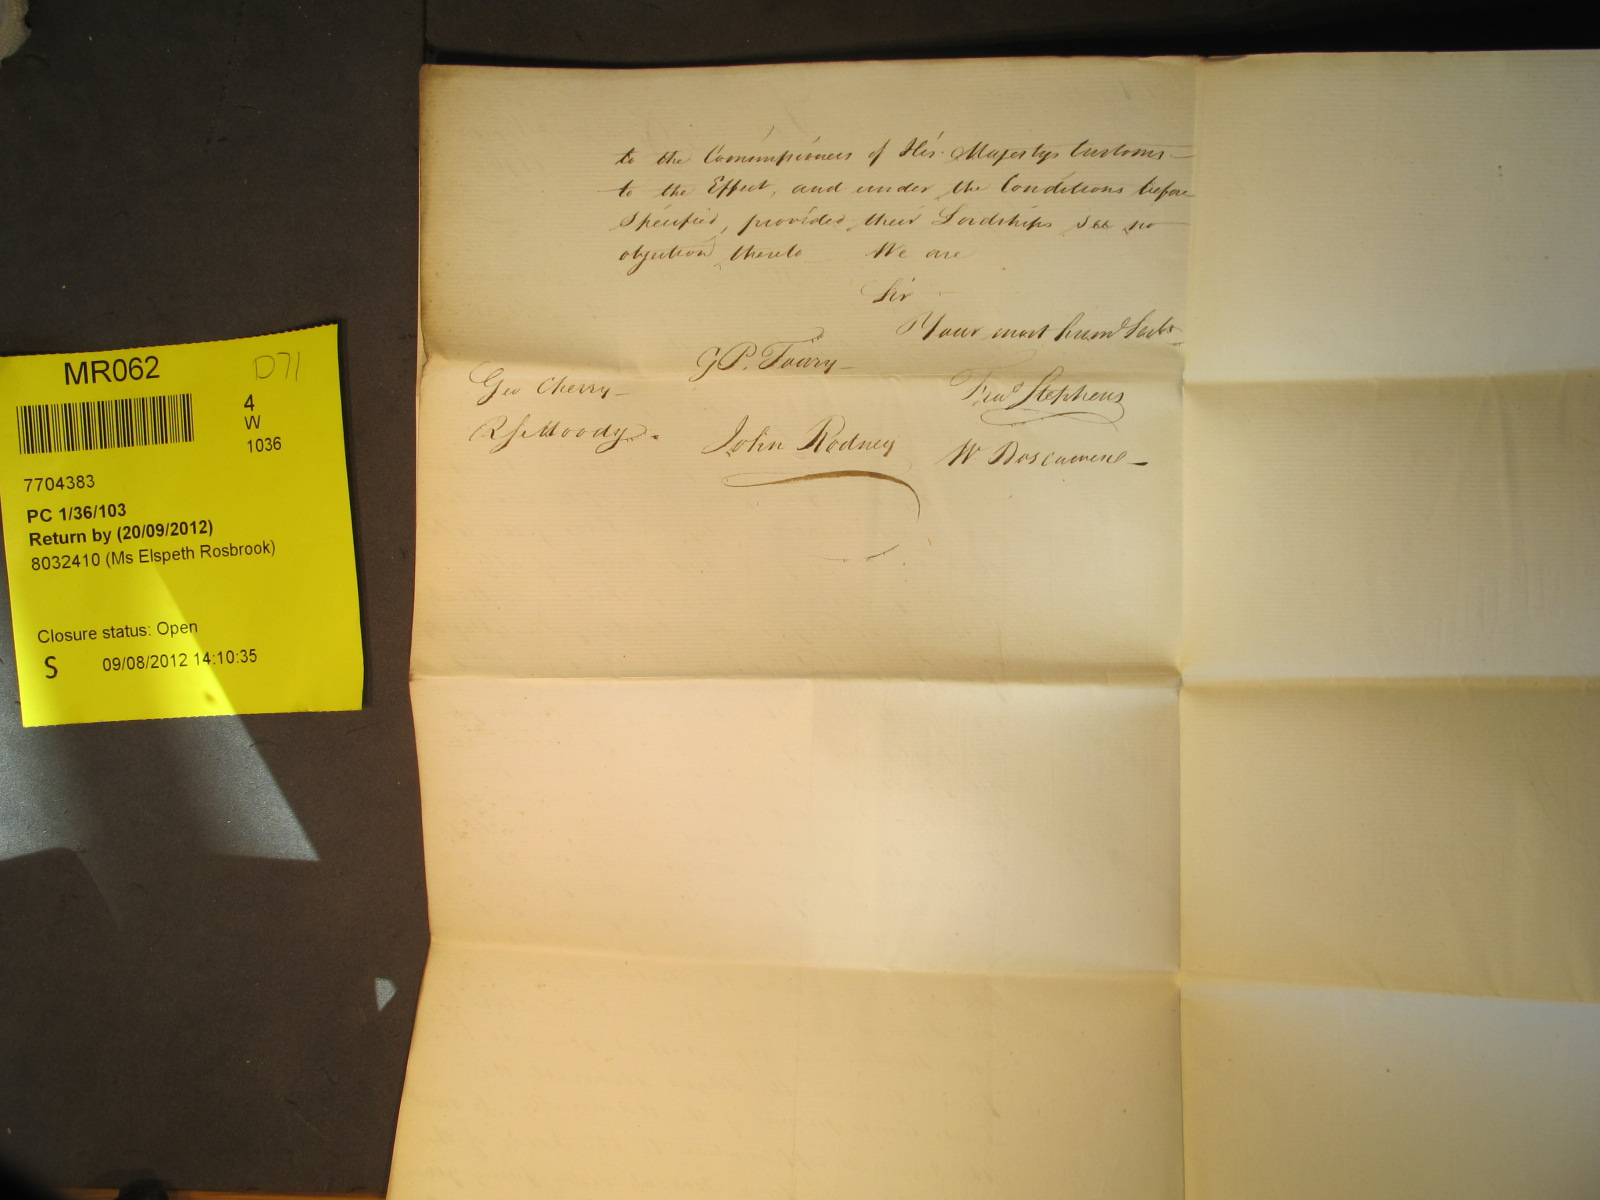 to the Commissioners of His Majestys Customs
to the Effect, and under the Conditions before
Specified, provided their Lordships see no
objection thereto We are
Sir
Your most hum^l Serv^ts
G P. Towry
Geo Cherry
Fra^s Stephens
R S Moody
John Rodney
W Boscawen
MR062
D71
4
W
1036
7704383
PC 1/36/103
Return by (20/09/2012)
8032410 (Ms Elspeth Rosbrook)
Closure status: Open
S 09/08/2012 14:10:35